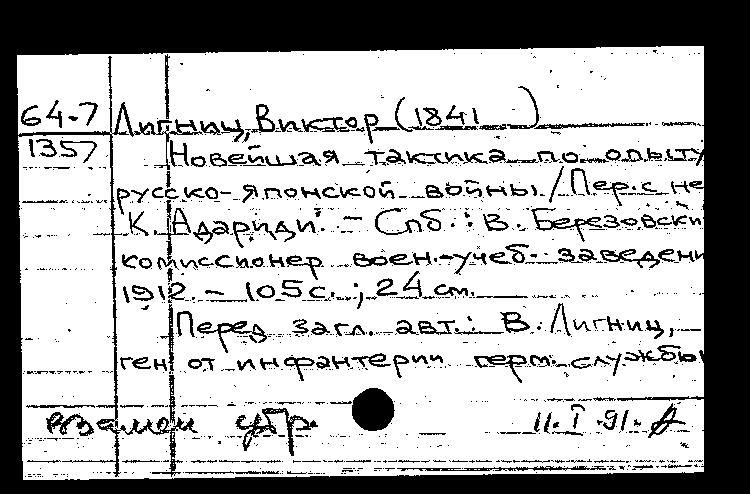 64-7 Лигниц, Виктор (1841 )
1357 Новейшая тактика по опыту
русско-японской войны / Пер. с не
К. Адариди. - Спб. : В. Березовски
комиссионер воен.-учеб. заведени
1912. - 105 с. ; 24 см.
Перед загл. авт.: В. Лигниц,
ген от инфантерии герм. службы
взамен утр. 11.I.91.